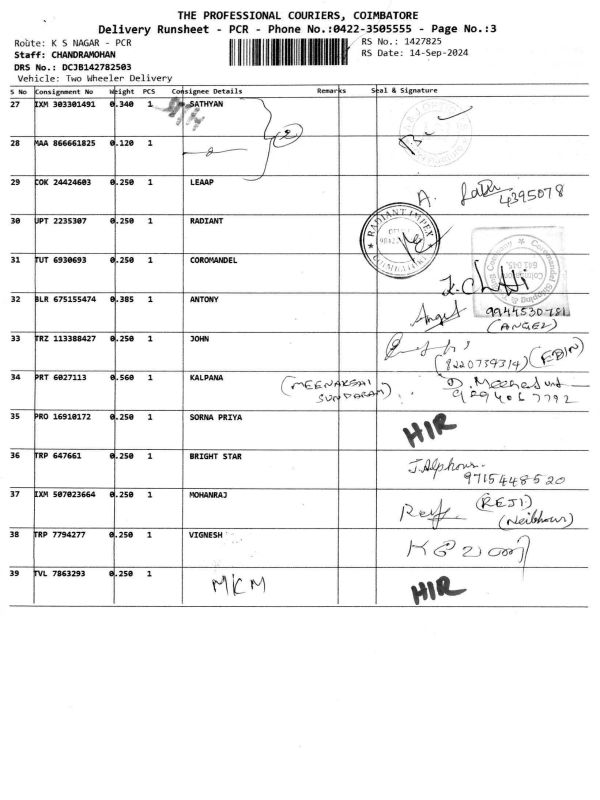 THE PROFESSIONAL COURIERS, COIMBATORE
Delivery Runsheet - PCR - Phone No.:0422-3505555 - Page No.:3
Route: K S NAGAR - PCR
RS No.: 1427825
Staff: CHANDRAMOHAN
RS Date: 14-Sep-2024
DRS No.: DCJB142782503
Vehicle: Two Wheeler Delivery
S No Consignment No Weight PCS Consignee Details Remarks Seal & Signature
27 IXM 303301491 0.340 1 SATHYAN
28 MAA 866661825 0.120 1
29 COK 24424603 0.250 1 LEAAP
A.
4395078
30 UPT 2235307 0.250 1 RADIANT
RADIANT IMPEX
COIMBATORE
31 TUT 6930693 0.250 1 COROMANDEL
32 BLR 675155474 0.385 1 ANTONY
9944530781
(ANGEL)
33 TRZ 113388427 0.250 1 JOHN
(EBIN)
34 PRT 6027113 0.560 1 KALPANA
(MEENAKSHI
SUNDARAM)
35 PRO 16910172 0.250 1 SORNA PRIYA
HIR
36 TRP 647661 0.250 1 BRIGHT STAR
J. Alphous.
9715448520
37 IXM 507023664 0.250 1 MOHANRAJ
(REJI)
(Neibhour)
38 TRP 7794277 0.250 1 VIGNESH
39 TVL 7863293 0.250 1 MKM
HIR